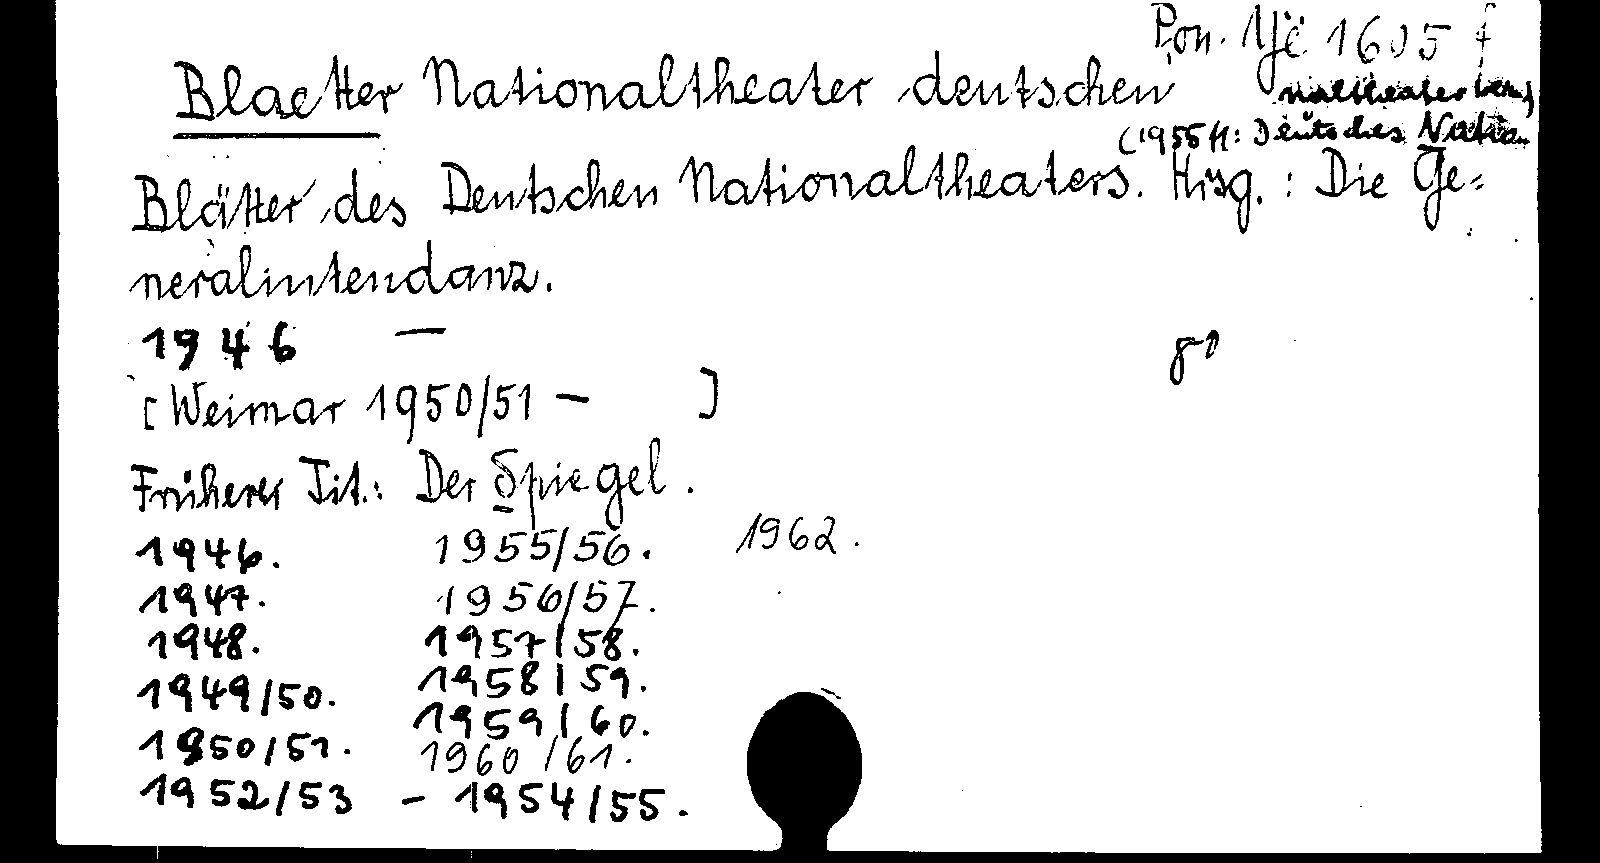 Pon. Yë 1605 f
Blaetter Nationaltheater deutschen
(1955 ff: Deutsches Natio-
naltheater
Blätter des Deutschen Nationaltheaters. Hrsg.: Die Ge-
neralintendanz.
1946 —
8°
[Weimar 1950/51 — ]
Früherer Tit.: Der Spiegel.
1946. 1955/56. 1962.
1947. 1956/57.
1948. 1957/58.
1949/50. 1958/59.
1950/51. 1959/60.
1960/61.
1952/53 - 1954/55.